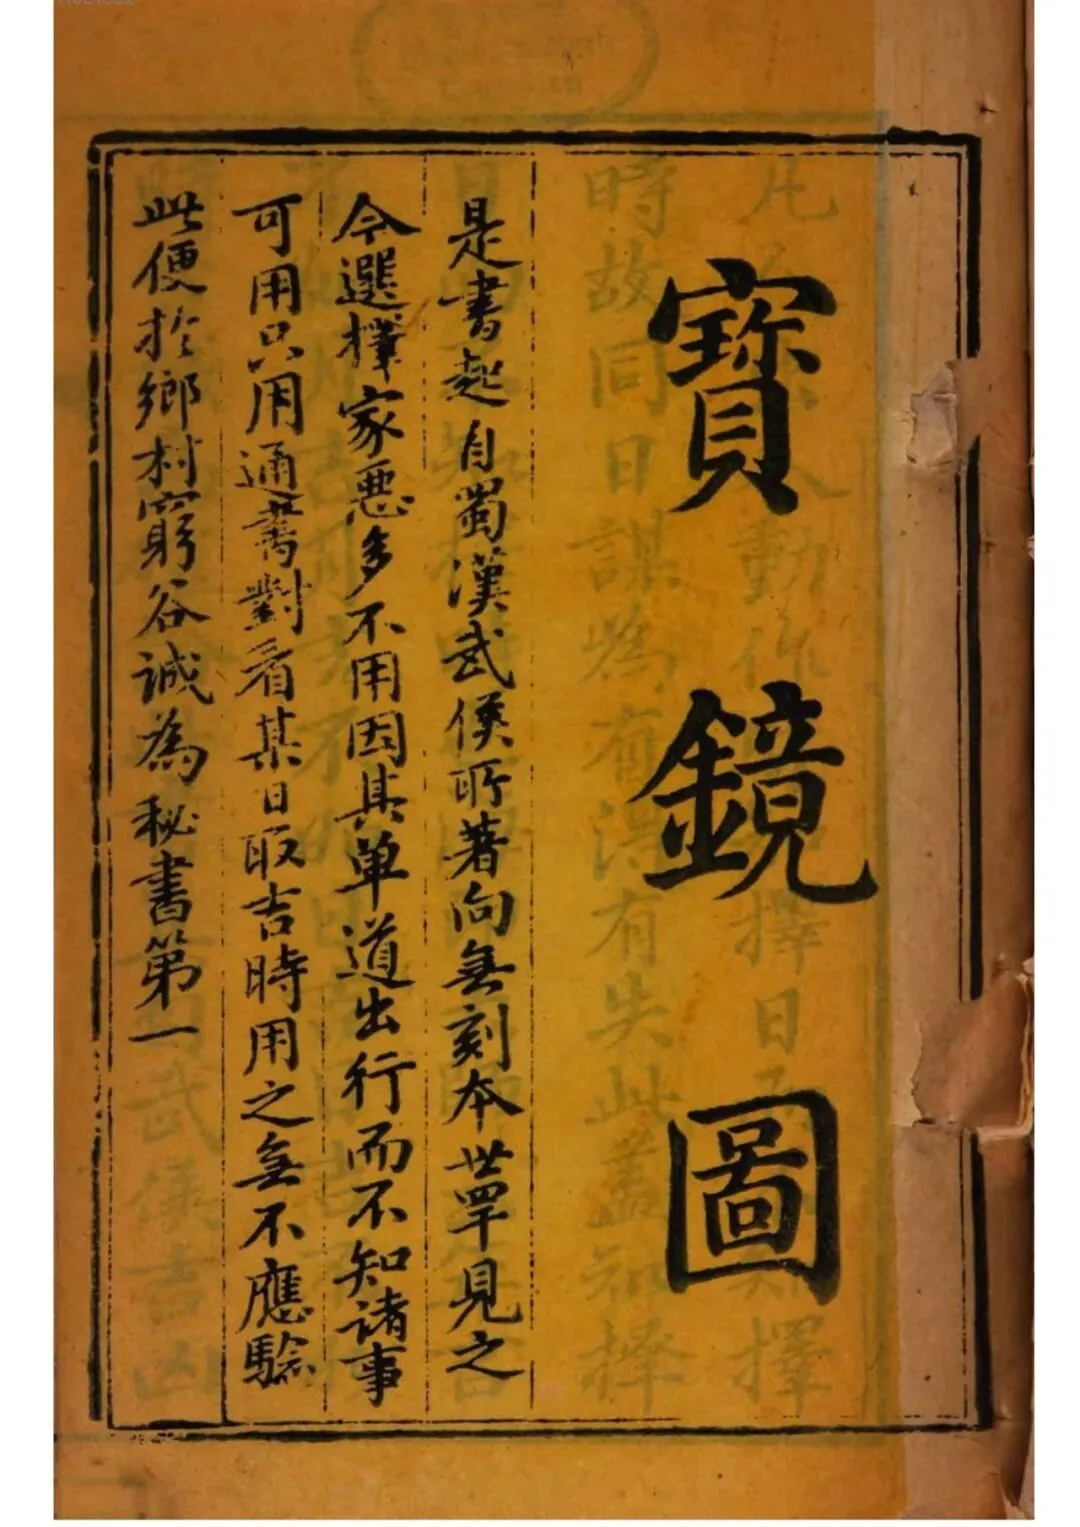 寳鏡圖
是書起自蜀漢武侯所著向無刻本世罕見之
今選擇家悪多不用因其单道出行而不知諸事
可用只用通書對看某日取吉時用之無不應驗
此便於鄉村窮谷誠為秘書第一